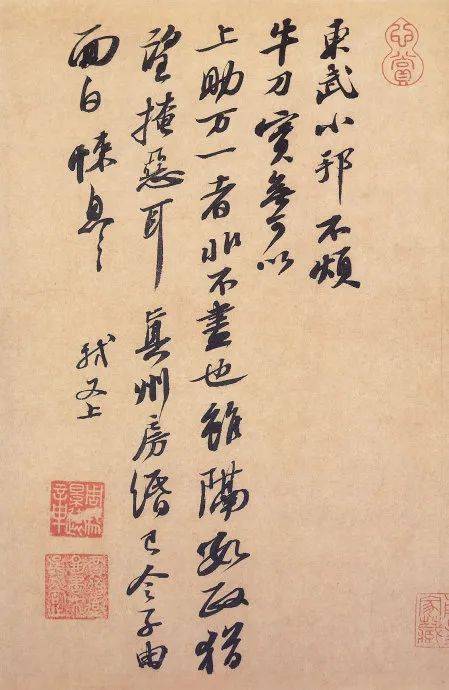 東武小邦不煩
牛刀實無可以
上助万一者非不盡也雖隔數政猶
望掩惡耳眞州房緡已令子由
面白悚息々
軾又上
家藏